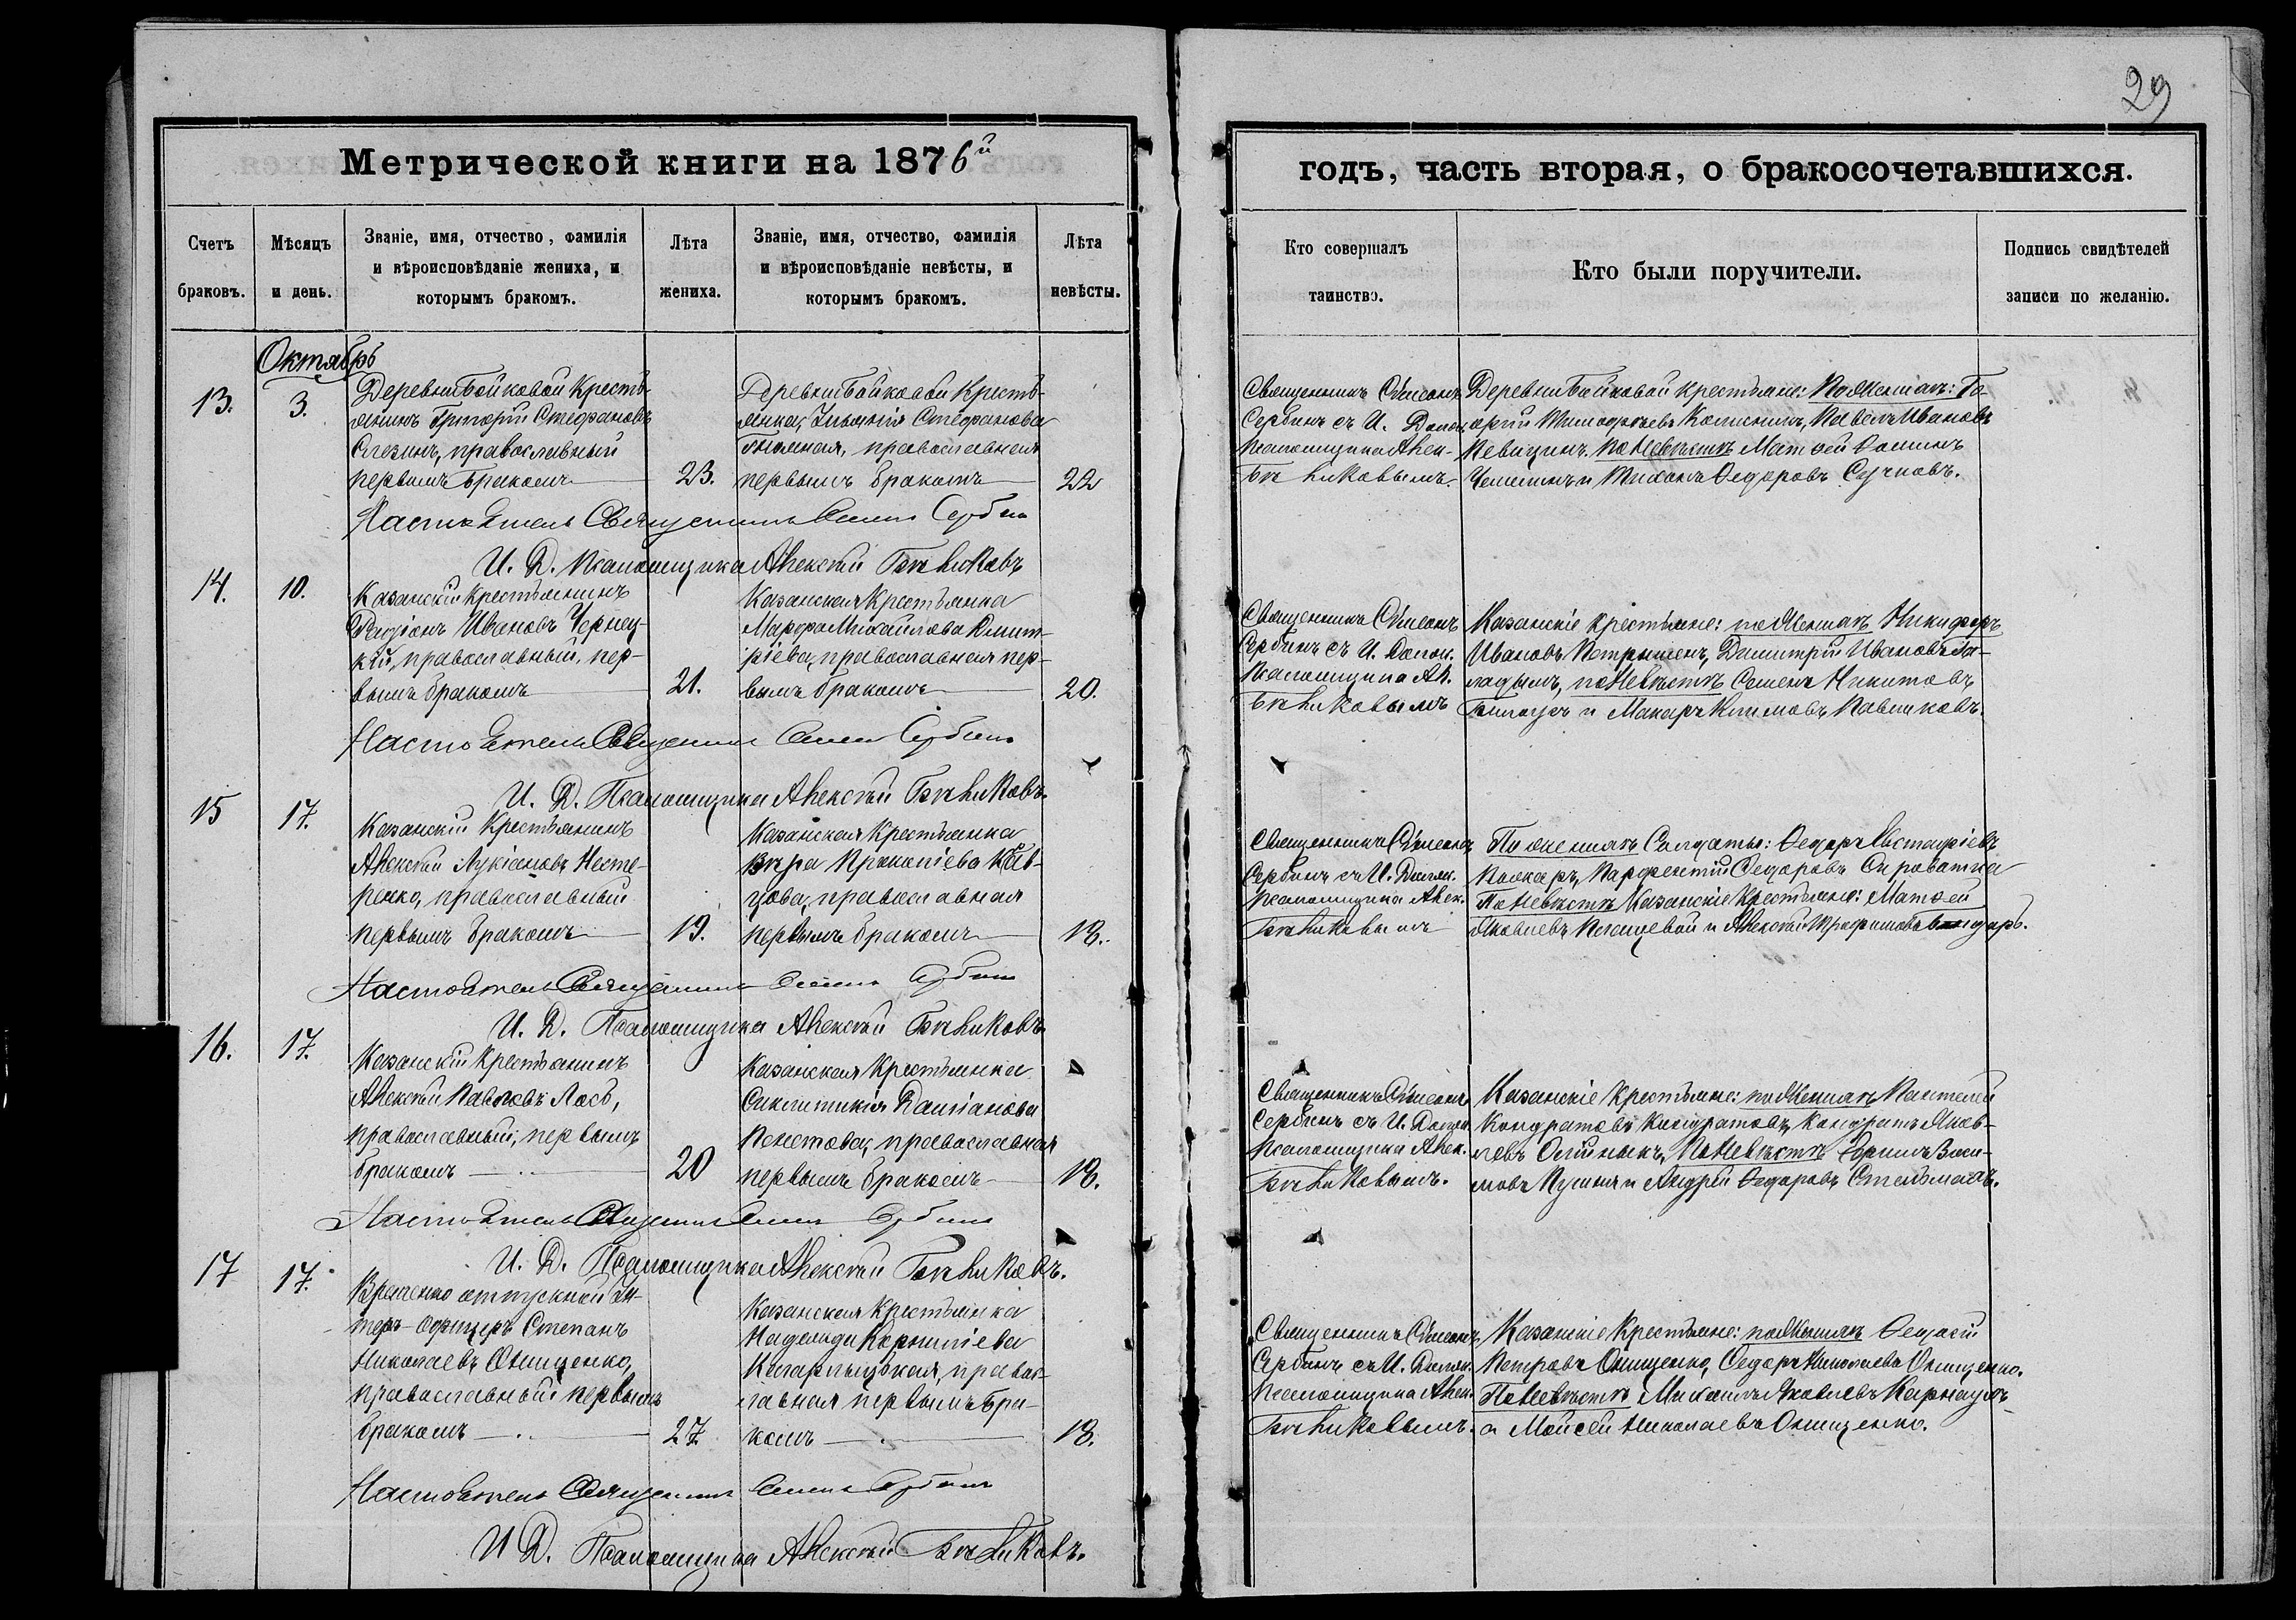 29
Метрической книги на 1876й
годъ, часть вторая, о бракосочетавшихся.
Счетъ браковъ.
Мѣсяцъ и день.
Званіе, имя, отчество, фамилія
и вѣроисповѣданіе жениха, и
которымъ бракомъ.
Лѣта жениха.
Званіе, имя, отчество, фамилія
и вѣроисповѣданіе невѣсты, и
которымъ бракомъ.
Лѣта невѣсты.
Кто совершалъ
таинство.
Кто были поручители.
Подпись свидѣтелей
записи по желанію.
Октябрь
13.
3.
Деревни Бойковой Кресть-
янинъ Григорій Стефановъ
Слезинъ, православный
первымъ бракомъ
23.
Деревни Бойковой Кресть-
янка, Стефанова
православная
первымъ бракомъ
22
Священникъ Симеонъ
Сербинъ съ И. Долж.
Псаломщика Алек.
Бѣликовымъ.
Деревни Бойковой крестьяне: по Женихѣ: Гри-
горій Тимофѣевъ Павелъ Ивановъ
Певицинъ. по Невѣстѣ Матѳей Ѳоминъ
и Тихонъ Ѳедоровъ Сучковъ.
Настоятель Священникъ Симеонъ Сербинъ
И. Д. Псаломщика Алексѣй Бѣликовъ
14.
10.
Казанскій крестьянинъ
Родіонъ Ивановъ Чернец-
кій, православный, пер-
вымъ бракомъ
21.
Казанская крестьянка
Марфа Михайлова Дмит-
ріева, православная пер-
вымъ бракомъ
20.
Священникъ Симеонъ
Сербинъ съ И. Долж.
Псаломщика Ал.
Бѣликовымъ
Казанскіе крестьяне: по Женихѣ Никифоръ
Ивановъ Димитрій Ивановъ Га-
ладымъ, по Невѣстѣ Семенъ Никитовъ
Билоусъ и Макаръ Климовъ Павликовъ.
Настоятель Священникъ Симеонъ Сербинъ
И. Д. Псаломщика Алексѣй Бѣликовъ.
15
17.
Казанскій Крестьянинъ
Алексѣй Лукіановъ Несте-
ренко, православный
первымъ бракомъ
19.
Казанская Крестьянка
Вѣра Прокопіева
православная
первымъ бракомъ
18.
Священникъ Симеонъ
Сербинъ съ И. Долж.
Псаломщика Алек.
Бѣликовымъ
По женихѣ Солдаты: Ѳедоръ Евстафіевъ
Парфентій Ѳедоровъ Сыроватка
По Невѣстѣ Казанскіе Крестьяне: Матѳей
Яковлевъ и Алексѣй Трофимовъ Бондарь.
Настоятель Священникъ Симеонъ Сербинъ
И. Д. Псаломщика Алексѣй Бѣликовъ
16.
17.
Казанскій Крестьянинъ
Алексѣй Павловъ Лось,
православный, первымъ
бракомъ
20
Казанская Крестьянка
Синклитикія Даміанова
православная
первымъ бракомъ
18.
Священникъ Симеонъ
Сербинъ съ И. Долж.
Псаломщика Алек.
Бѣликовымъ.
Казанскіе Крестьяне: по Женихѣ Пантелей
Кондратовъ Кондратовъ, Кондратъ Яков-
левъ Олійныкъ, По Невѣстѣ
и Андрей Ѳедоровъ Стельмахъ.
Настоятель Священникъ Симеонъ Сербинъ
И. Д. Псаломщика Алексѣй Бѣликовъ.
17
17.
Временно отпускной Ун-
теръ-Офицеръ Степанъ
Николаевъ Онищенко,
православный первымъ
бракомъ
27.
Казанская Крестьянка
Надежда Корниліева
правос-
лавная первымъ бра-
комъ
18.
Священникъ Симеонъ
Сербинъ съ И. Долж.
Псаломщика Алек.
Бѣликовымъ.
Казанскіе Крестьяне: по Женихѣ Ѳедосій
Петровъ Онищенко, Ѳедоръ Николаевъ Онищенко.
По Невѣстѣ Михаилъ Яковлевъ Карнаухъ
и Мойсей Николаевъ Онищенко.
Настоятель Священникъ Симеонъ Сербинъ
И Д. Псаломщика Алексѣй Бѣликовъ.